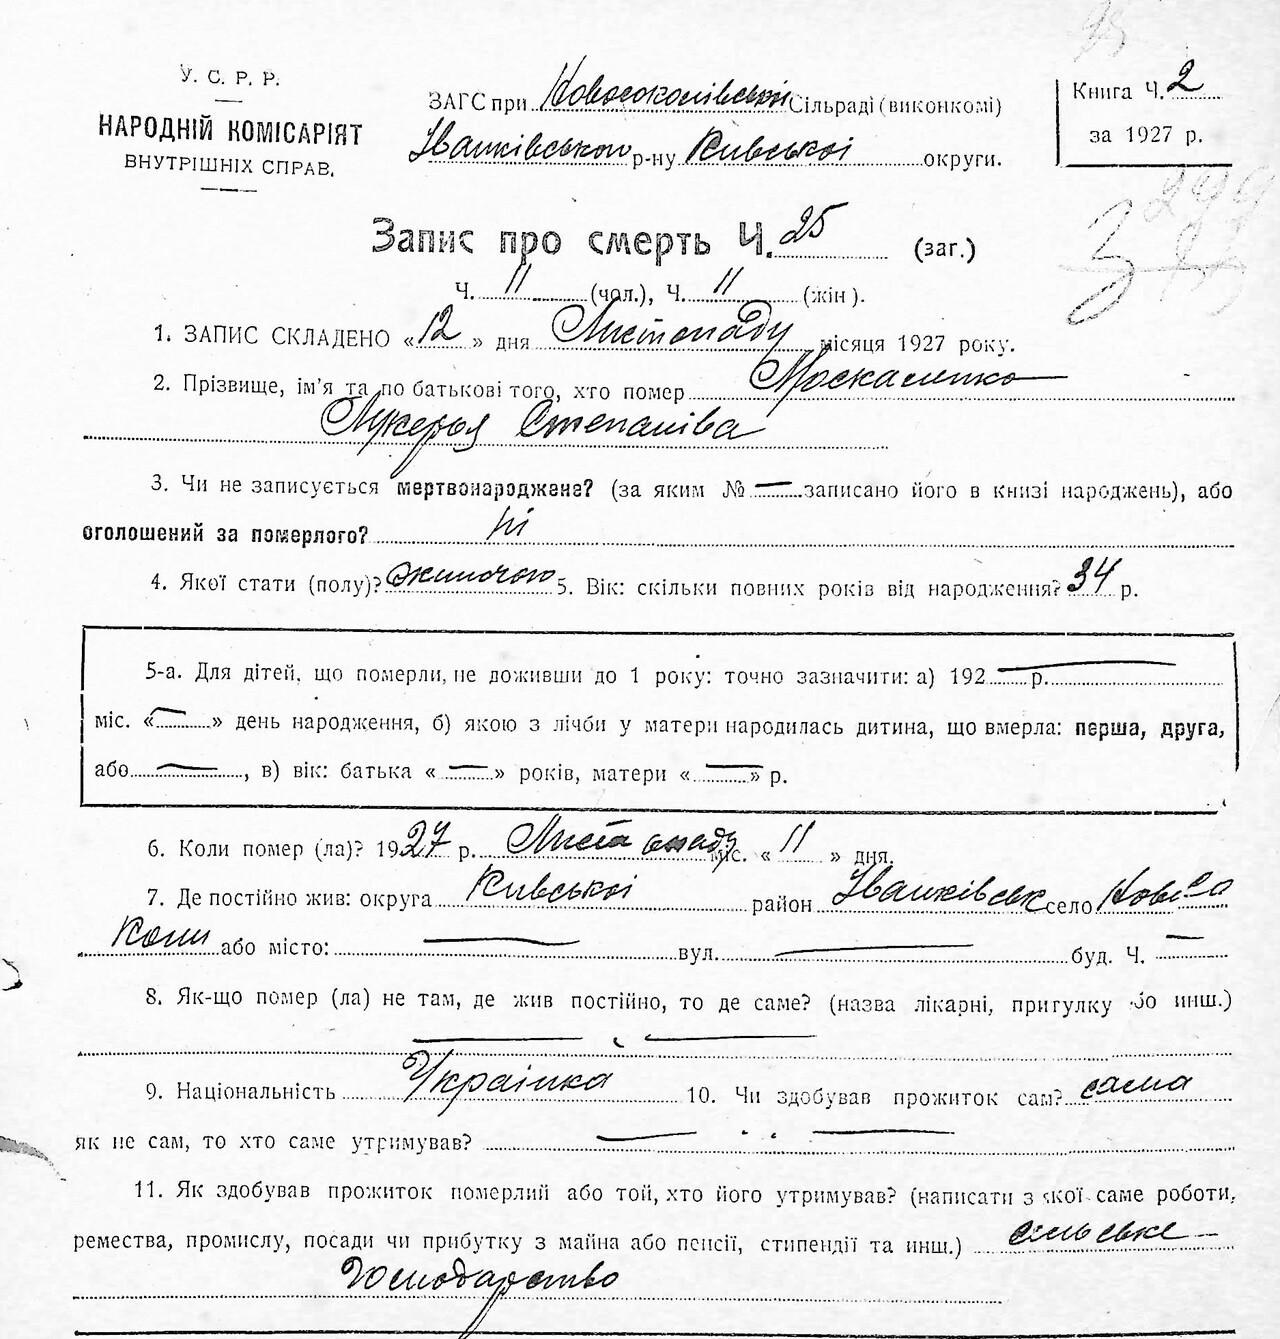 У. С. Р. Р.
НАРОДНІЙ КОМІСАРІЯТ
ВНУТРІШНІХ СПРАВ.
ЗАГС при Новосоколівській Сільраді (виконкомі)
Іванківського р-ну Київської округи.
Книга Ч. 2
за 1927 р.
Запис про смерть Ч. 25 (заг.)
Ч. 11 (чол.), Ч. 11 (жін).
1. ЗАПИС СКЛАДЕНО «12» дня Листопаду місяця 1927 року.
2. Прізвище, ім'я та по батькові того, хто помер Москаленко
Лукерья Степанівa
3. Чи не записується мертвонароджене? (за яким № — записано його в книзі народжень), або
оголошений за померлого? ні
4. Якої стати (полу)? жиночою 5. Вік: скільки повних років від народження? 34 р.
5-а. Для дітей, що померли, не доживши до 1 року: точно зазначити: а) 192 — р. —
міс. « — » день народження, б) якою з лічби у матери народилась дитина, що вмерла: перша, друга,
або — , в) вік: батька « — » років, матери « — » р.
6. Коли помер (ла)? 1927 р. Листопаду міс. « 11 » дня.
7. Де постійно жив: округа Київської район Іванківськ село Новосо
коли або місто: — вул. — буд. Ч. —
8. Як-що помер (ла) не там, де жив постійно, то де саме? (назва лікарні, пригулку або инш.)
— —
9. Національність Українка 10. Чи здобував прожиток сам? сама
як не сам, то хто саме утримував? — —
11. Як здобував прожиток померлий або той, хто його утримував? (написати з якої саме роботи,
ремества, промислу, посади чи прибутку з майна або пенсії, стипендії та инш.) сільське —
господарство